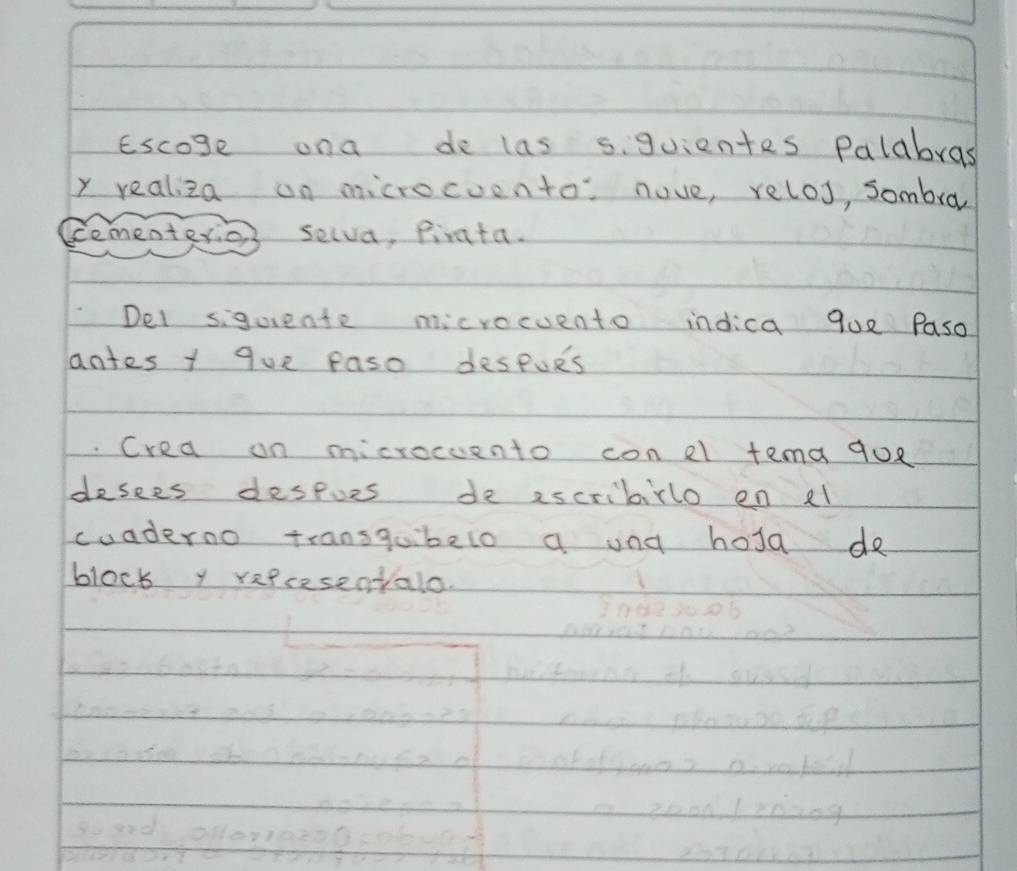 Escoge una de las siguientes Palabras
y realiza un microcuento: nuve, reloj, sombra
cementerio, selva, Pirata.
Del siguiente microcuento indica que Paso
antes y que paso después
. Crea un microcuento con el tema que
desees despues de escribirlo en el
cuaderno transquibelo a una hoja de
block y represental​o.